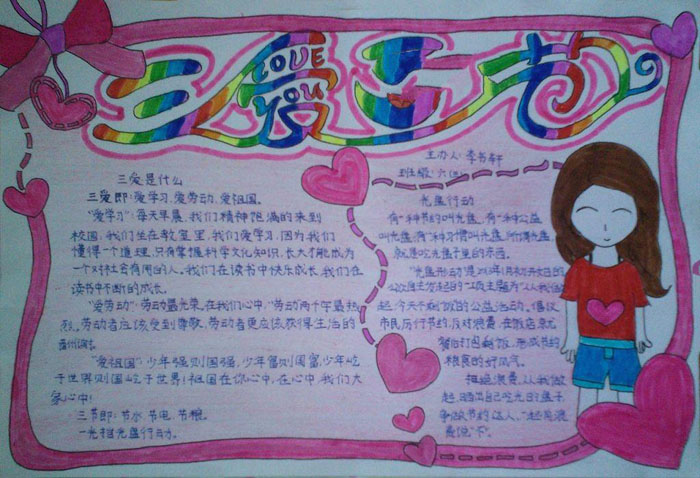 三爱三节
LOVE
YOU
主办人:李书轩
班级:六
三爱是什么
三爱即:爱学习,爱劳动,爱祖国。
"爱学习":每天早晨,我们精神饱满的来到
校园,我们坐在教室里,我们爱学习,因为我们
懂得一个道理,只有掌握科学文化知识,长大才能成为
一个对社会有用的人。我们在读书中快乐成长,我们在
读书中不断的成长。
"爱劳动":劳动最光荣,在我们心中,"劳动两个字最热
烈。劳动者应该受到尊敬,劳动者更应该获得生活的
"爱祖国":少年强则国强,少年富则国富,少年屹
于世界则国屹于世界!祖国在你心中,在心中,我们大
家心中!
三节即:节水,节电,节粮。
光盘行动。
光盘行动
有一种节约叫光盘,有一种公益
叫光盘,有一种习惯叫光盘,所谓光盘,
就是吃光盘子里的东西。
起,今天不剩饭的公益活动。倡议
市民厉行节约,反对浪费,在饭店就
餐后打包剩饭,形成
粮食的好风气。
拒绝浪费,从我做
起,晒出自己吃光的盘子,
争做节约达人,一起向浪
费说"不"。